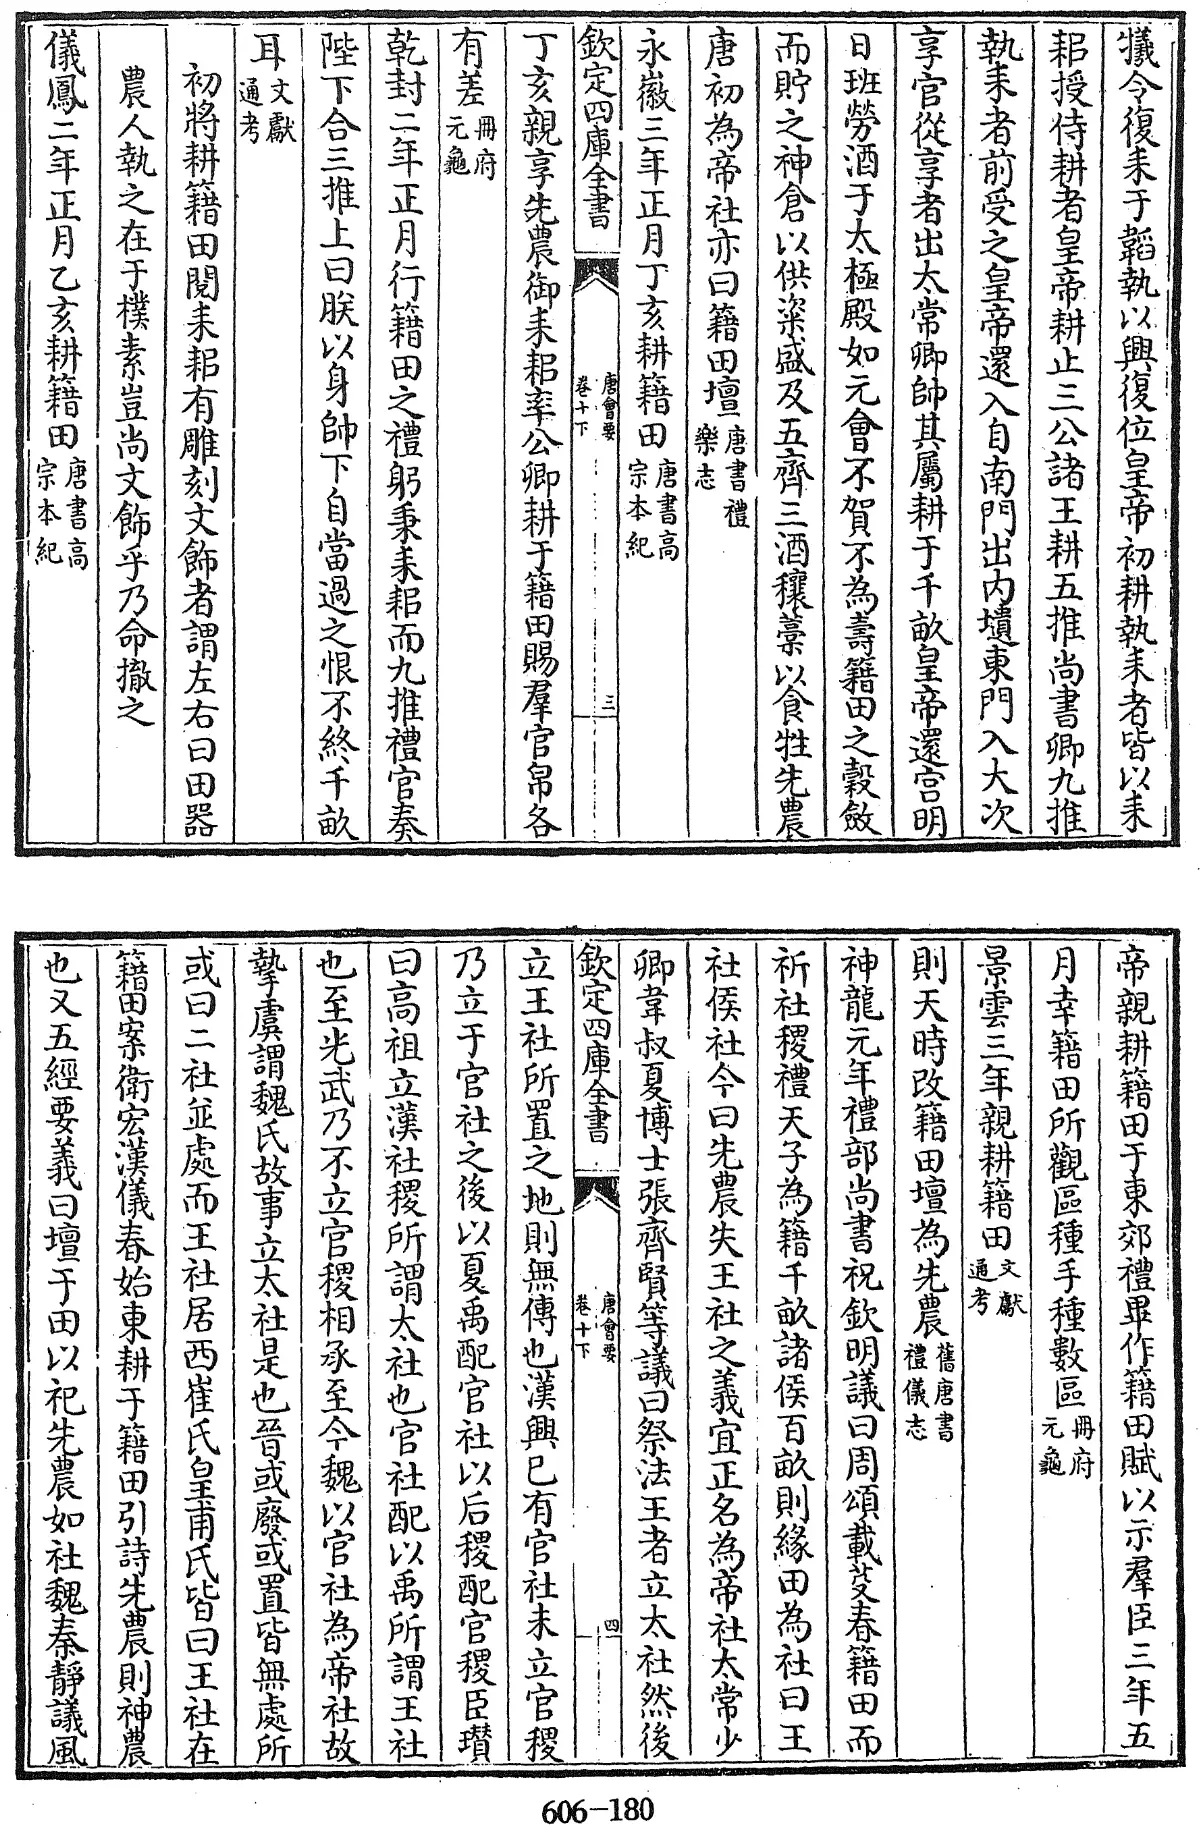 犧令復耒于韜執以興復位皇帝初耕執耒者皆以耒
耜授侍耕者皇帝耕止三公諸王耕五推尚書卿九推
執耒者前受之皇帝還入自南門出内壝東門入大次
享官從享者出太常卿帥其屬耕于千畝皇帝還宫明
日班勞酒于太極殿如元會不賀不為壽籍田之穀斂
而貯之神倉以供粢盛及五齊三酒穰藁以食牲先農
唐初為帝社亦曰籍田壇唐書禮樂志
永徽三年正月丁亥耕籍田唐書高宗本紀
欽定四庫全書 唐會要卷十下 三
丁亥親享先農御耒耜率公卿耕于籍田賜羣官帛各
有差冊府元龜
乾封二年正月行籍田之禮躬秉耒耜而九推禮官奏
陛下合三推上曰朕以身帥下自當過之恨不終千畝
耳文獻通考
初將耕籍田閱耒耜有雕刻文飾者謂左右曰田器
農人執之在于樸素豈尚文飾乎乃命撤之
儀鳳二年正月乙亥耕籍田唐書高宗本紀
帝親耕籍田于東郊禮畢作籍田賦以示羣臣三年五
月幸籍田所觀區種手種數區冊府元龜
景雲三年親耕籍田文獻通考
則天時改籍田壇為先農舊唐書禮儀志
神龍元年禮部尚書祝欽明議曰周頌載芟春籍田而
祈社稷禮天子為籍千畝諸侯百畝則緣田為社曰王
社侯社今曰先農失王社之義宜正名為帝社太常少
卿韋叔夏博士張齊賢等議曰祭法王者立太社然後
欽定四庫全書 唐會要卷十下 四
立王社所置之地則無傳也漢興已有官社未立官稷
乃立于官社之後以夏禹配官社以后稷配官稷臣瓚
曰高祖立漢社稷所謂太社也官社配以禹所謂王社
也至光武乃不立官稷相承至今魏以官社為帝社故
摯虞謂魏氏故事立太社是也晉或廢或置皆無處所
或曰二社並處而王社居西崔氏皇甫氏皆曰王社在
籍田案衛宏漢儀春始東耕于籍田引詩先農則神農
也又五經要義曰壇于田以祀先農如社魏秦靜議風
606-180